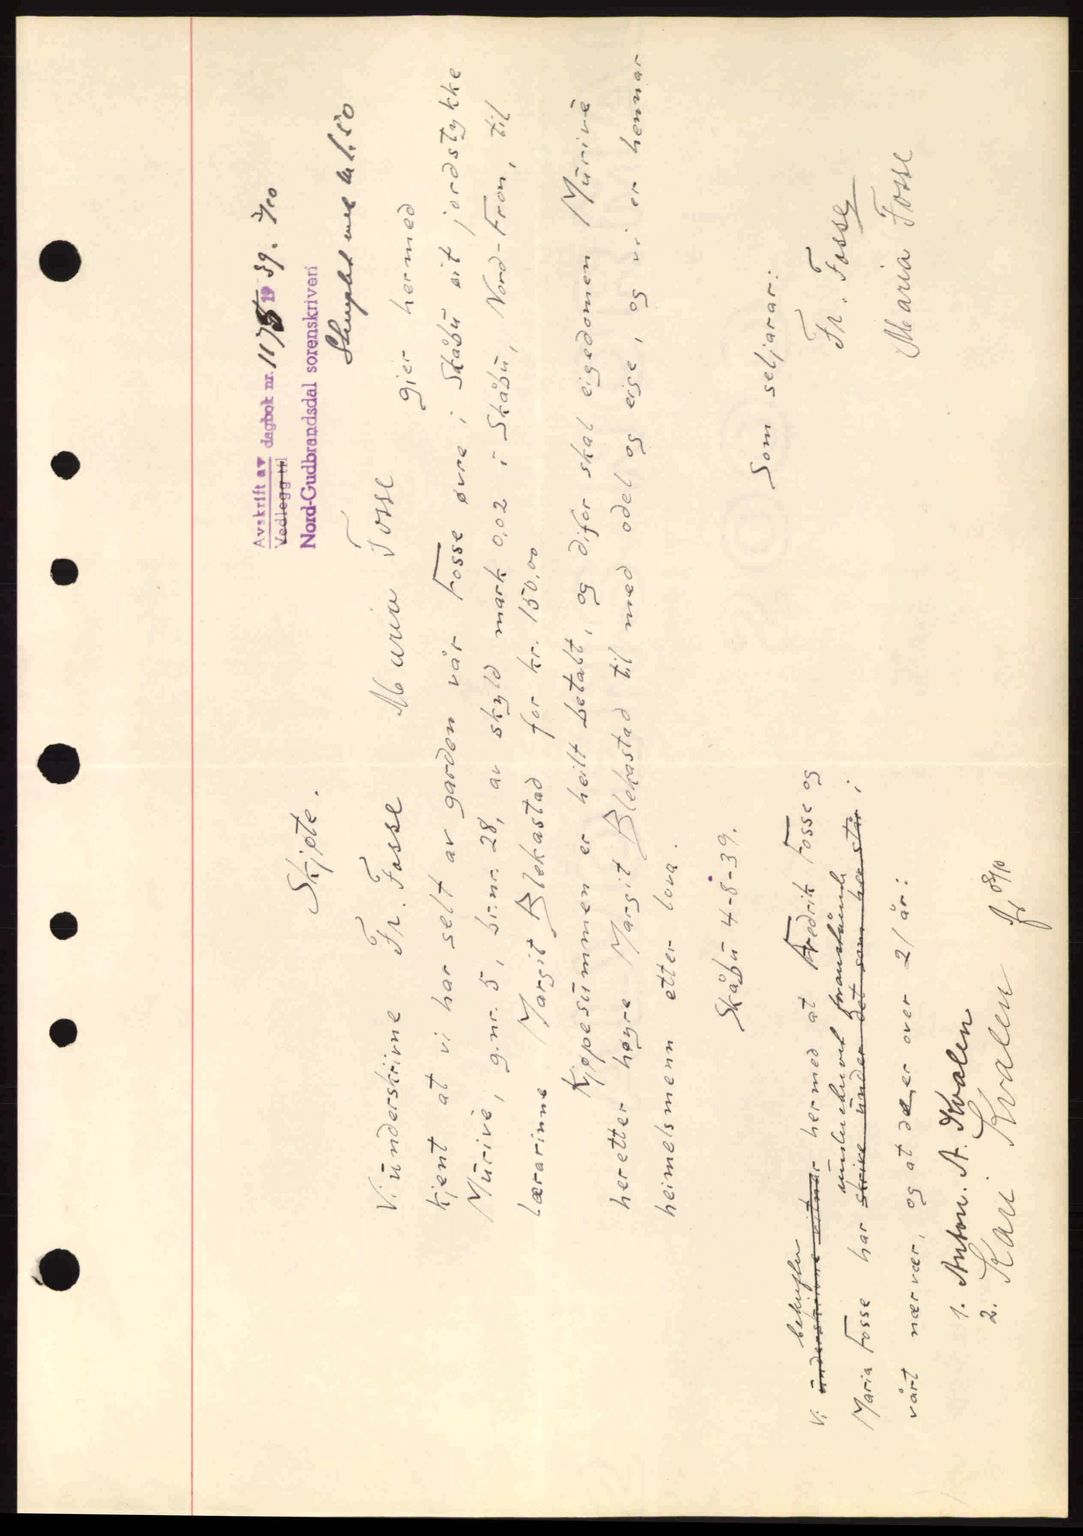 Avskrift av
Vedlegg til dagbok nr. 1175 1939. 7/10
Nord-Gudbrandsdal sorenskriveri
Stemplet med kr 1.50
Skjøte.
Vi underskrivne Fr. Fosse Maria Fosse gjer hermed
kjent at vi har selt av garden vår Fosse øvre i Skåbu eit jordstykke
Murive, g.nr. 5, br.nr. 28, av skyld mark 0,02 i Skåbu, Nord-Fron, til
lærarinne Margit Blekastad for kr. 150,00
Kjøpesummen er heilt betalt, og difor skal eigedomen Murive
heretter høyre Margit Blekastad til med odel og eige, og vi er hennar
heimelsmenn etter lova.
Skåbu 4-8-39.
Som seljarar:
Fr. Fosse
Maria Fosse
bekrefter
Vi underskrivne vitnar hermed at Fredrik Fosse og
underskrevet foranstående
Maria Fosse har skrive under det som her står i
vårt nærvær, og at de er over 21 år:
1. Anton. A. Kvalen
2. Kari Kvalen